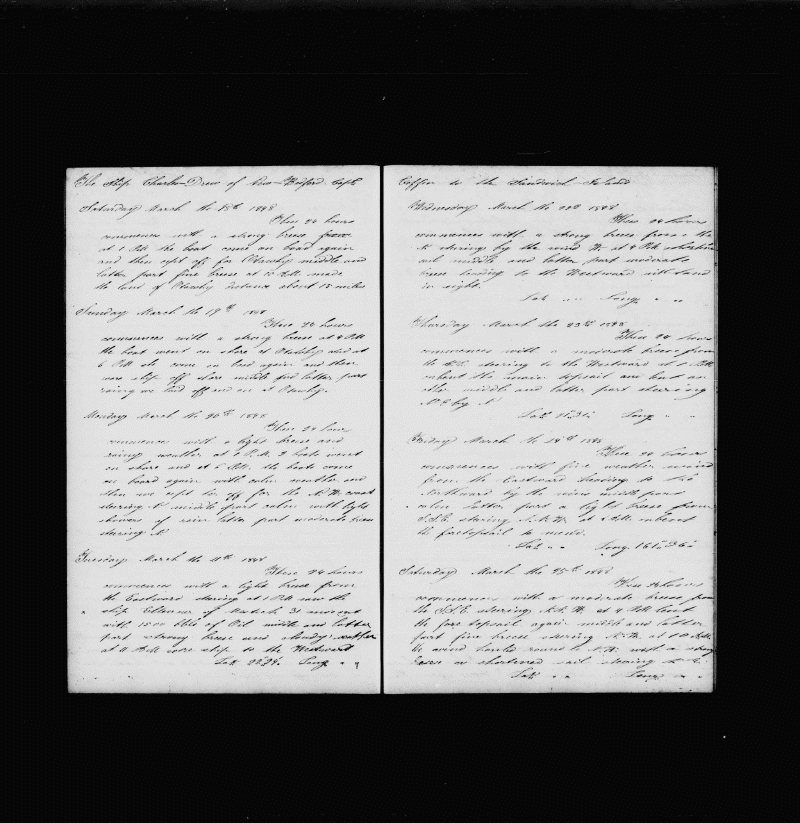 The Ship Charles Drew of New Bedford Capt
Saturday March the 18th 1848
These 24 hours
commences with a strong breeze from
at 1 P.M. the boat come on board again
and then kept off for middle and
latter part fine breeze at 10 P.M. made
the land of distance about 15 miles
Sunday March the 19th 1848
These 24 hours
commences with a strong breeze at 4 P.M.
the boat went on shore at and at
6 P.M. she come on board again and then
wore ship off shore middle and latter part
rainy we laid off and on at
Monday March the 20th 1848
These 24 hours
commences with a light breeze and
rainy weather at 1 P.M. 2 boats went
on shore and at 6 P.M. the boats come
on board again with calm weather and
then we kept for the N.W. coast
steering N middle part calm with light
showers of rain latter part moderate breeze
steering N
Tuesday March the 21th 1848
These 24 hours
commences with a light breeze from
the Eastward steering at 1 P.M. saw the
ship of 31 months out
with 1500 bbls of Oil middle and latter
part strong breeze and cloudy weather
at 11 P.M. wore ship to the Westward
Lat. Long " "
Coffin to the Sandwich Islands
Wednesday March the 22th 1848
These 24 hours
commences with a strong breeze from the
N steering by the wind W. at 4 P.M. shortened
sail middle and latter part moderate
breeze heading to the Westward with land
in sight.
Lat " " Long " "
Thursday March the 23th 1848
These 24 hours
commences with a moderate breeze from
the steering to the Westward at 1 P.M.
the main topsail and bent an
other middle and latter part steering
N E by N
Lat Long " "
Friday March the 24th 1848
These 24 hours
commences with fine weather wind
from the Eastward heading to the
Northward by the wind middle part
calm latter part a light breeze from
S.S.E. steering N.N.W. at
the foretopsail to mend.
Lat " " Long.
Saturday March the 25th 1848
These 24 hours
commences with a moderate breeze from
the S.S.E. steering N.N.W. at 4 P.M. bent
the fore topsail again middle and latter
part fine breeze steering N.W. at 10 A.M.
the wind hauled round to N.W. with a strong
breeze we shortened sail steering
Lat " " Long " "